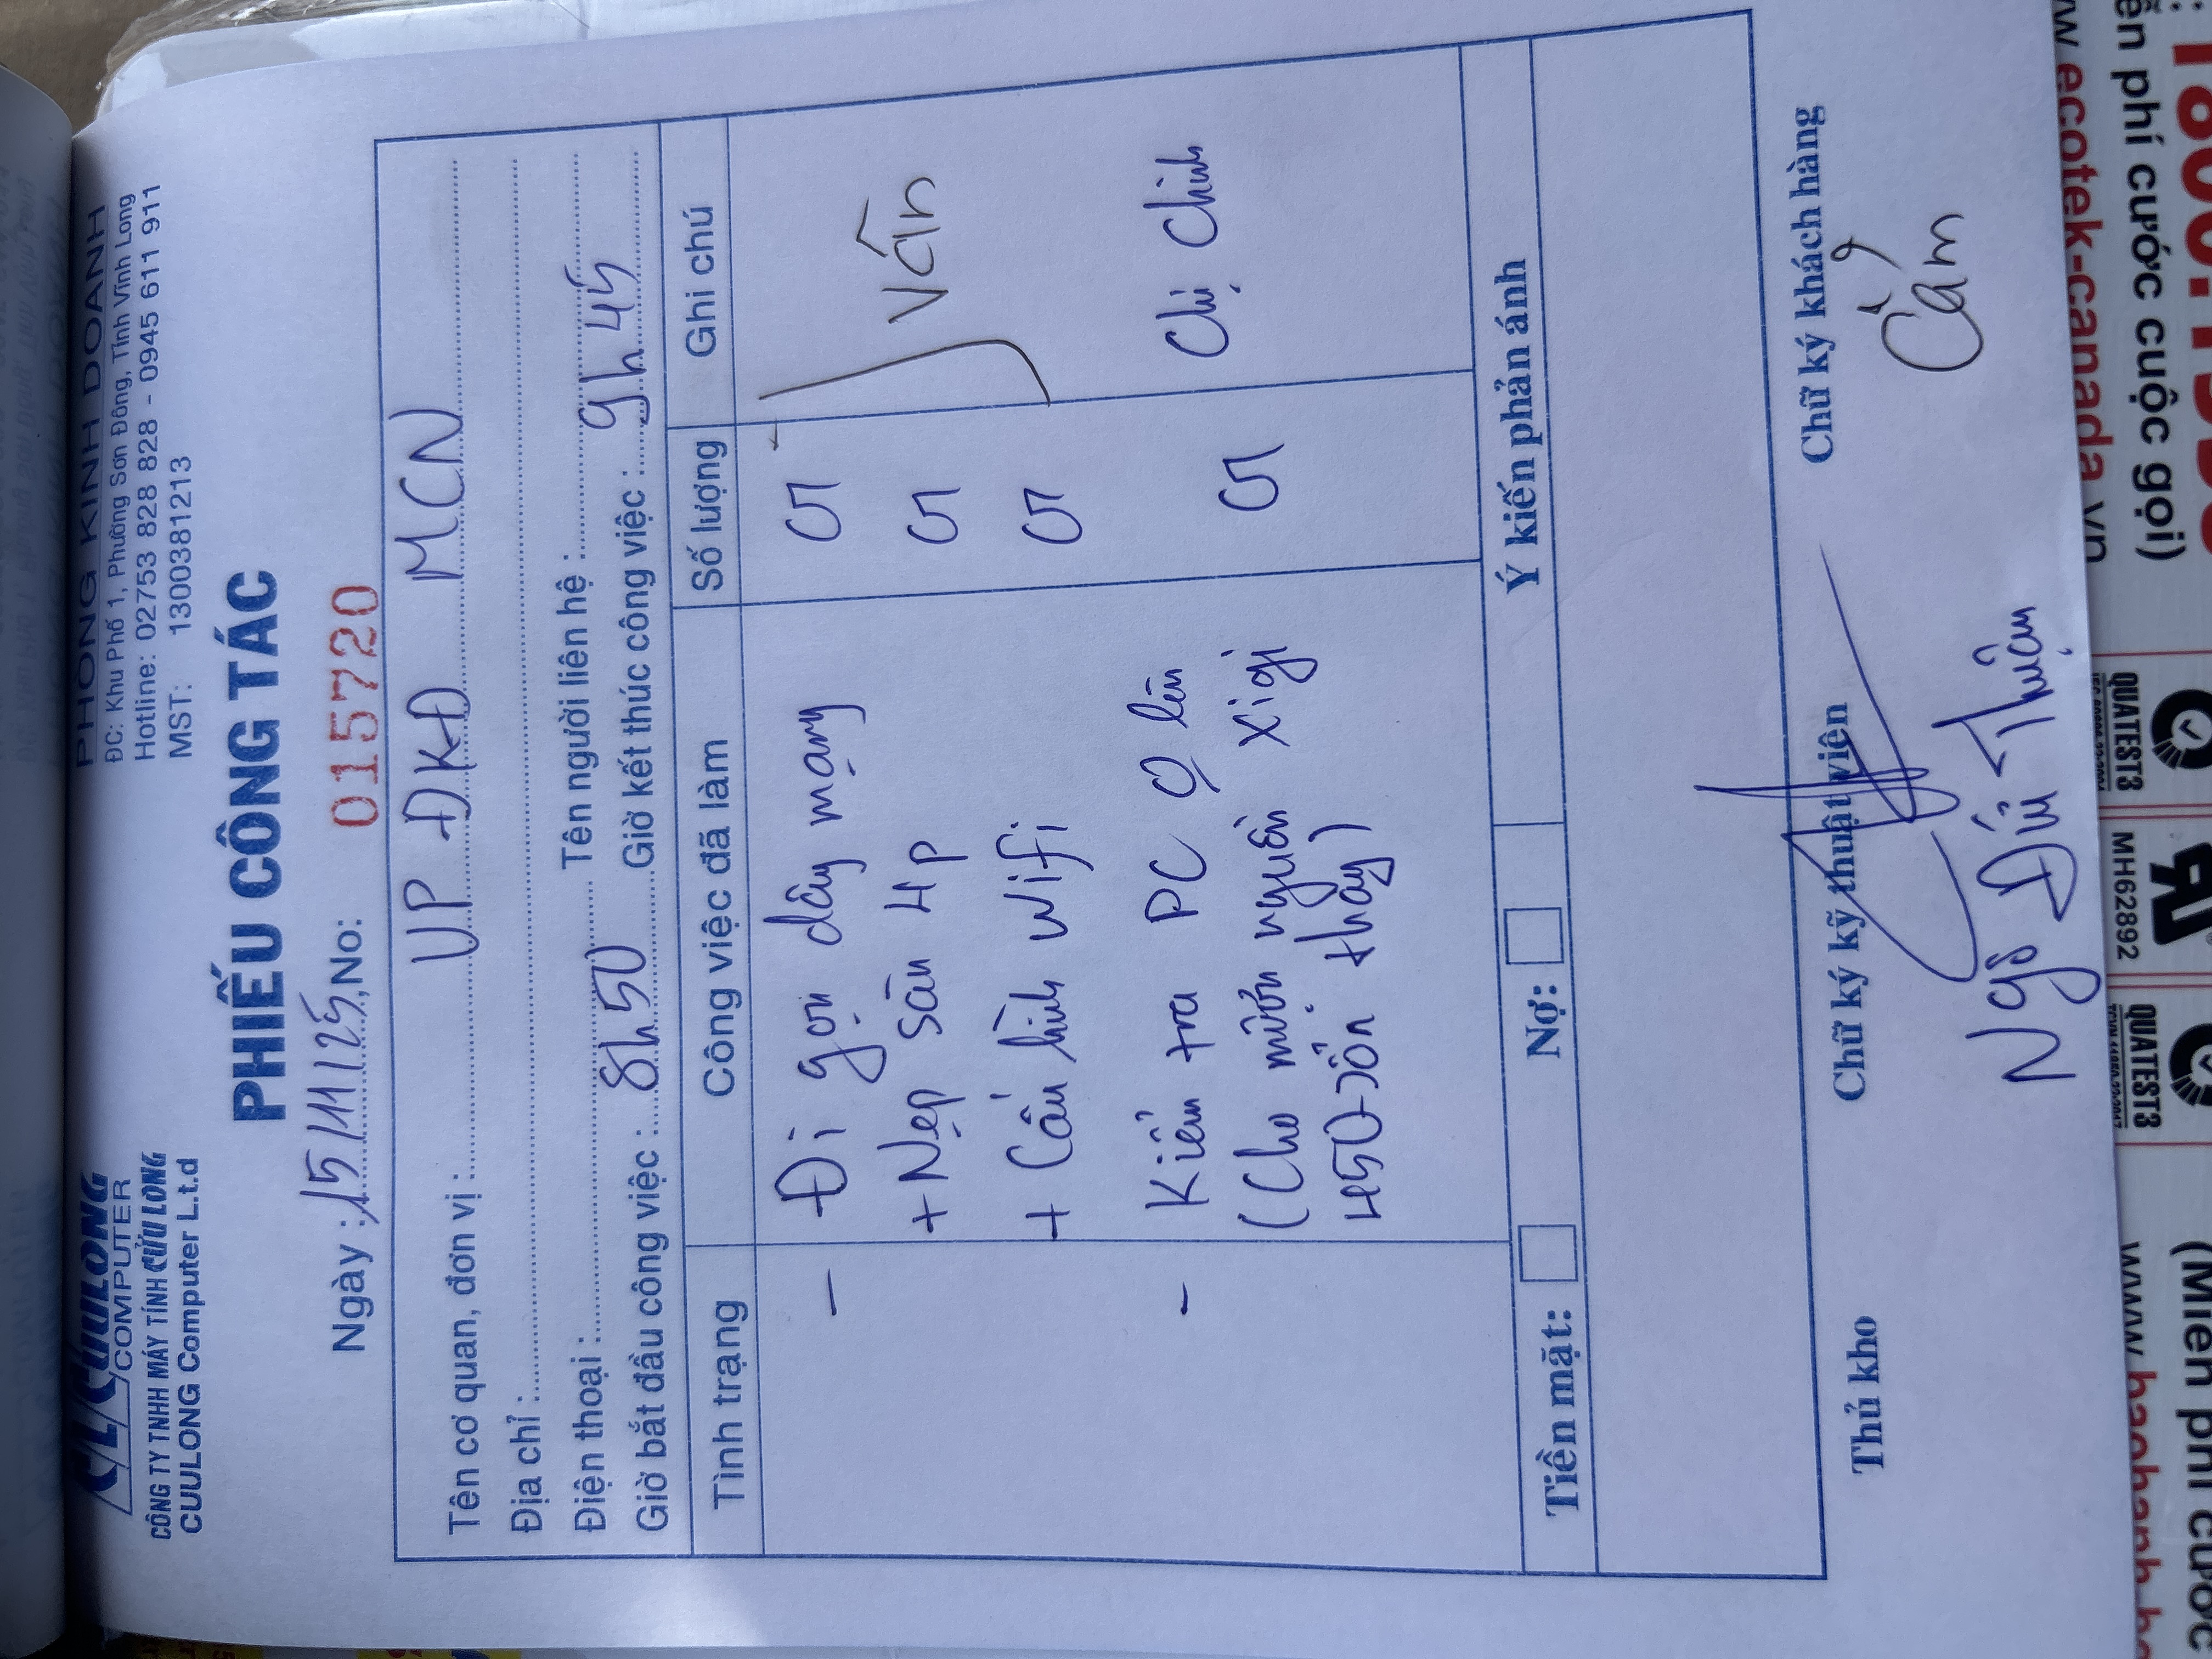 CỬULONG
COMPUTER
CÔNG TY TNHH MÁY TÍNH CỬU LONG
CUULONG Computer L.t.d
PHÒNG KINH DOANH
ĐC: Khu Phố 1, Phường Sơn Đông, Tỉnh Vĩnh Long
Hotline: 02753 828 828 - 0945 611 911
MST: 1300381213
PHIẾU CÔNG TÁC
Ngày : 15/11/25, No: 015720
Tên cơ quan, đơn vị : VP ĐKĐ MCN
Địa chỉ :
Điện thoại : Tên người liên hệ :
Giờ bắt đầu công việc : 8h50 Giờ kết thúc công việc : 9h45
Tình trạng Công việc đã làm Số lượng Ghi chú
- Đi gọn dây mạng 01
+ Nẹp sàn 4P 01 Vấn
+ Cấu hình wifi 01
- Kiểm tra PC lên Chị Chinh
(Cho mượn nguồn xigi 01
450 thay)
Tiền mặt: Nợ: Ý kiến phản ánh
Thủ kho Chữ ký kỹ thuật viên Chữ ký khách hàng
Cẩm
Ngô Đức Thuận
www.ecotek-canada.vn
ễn phí cước cuộc gọi)
QUATEST3
MH62892
QUATEST3
(Miễn phí cước